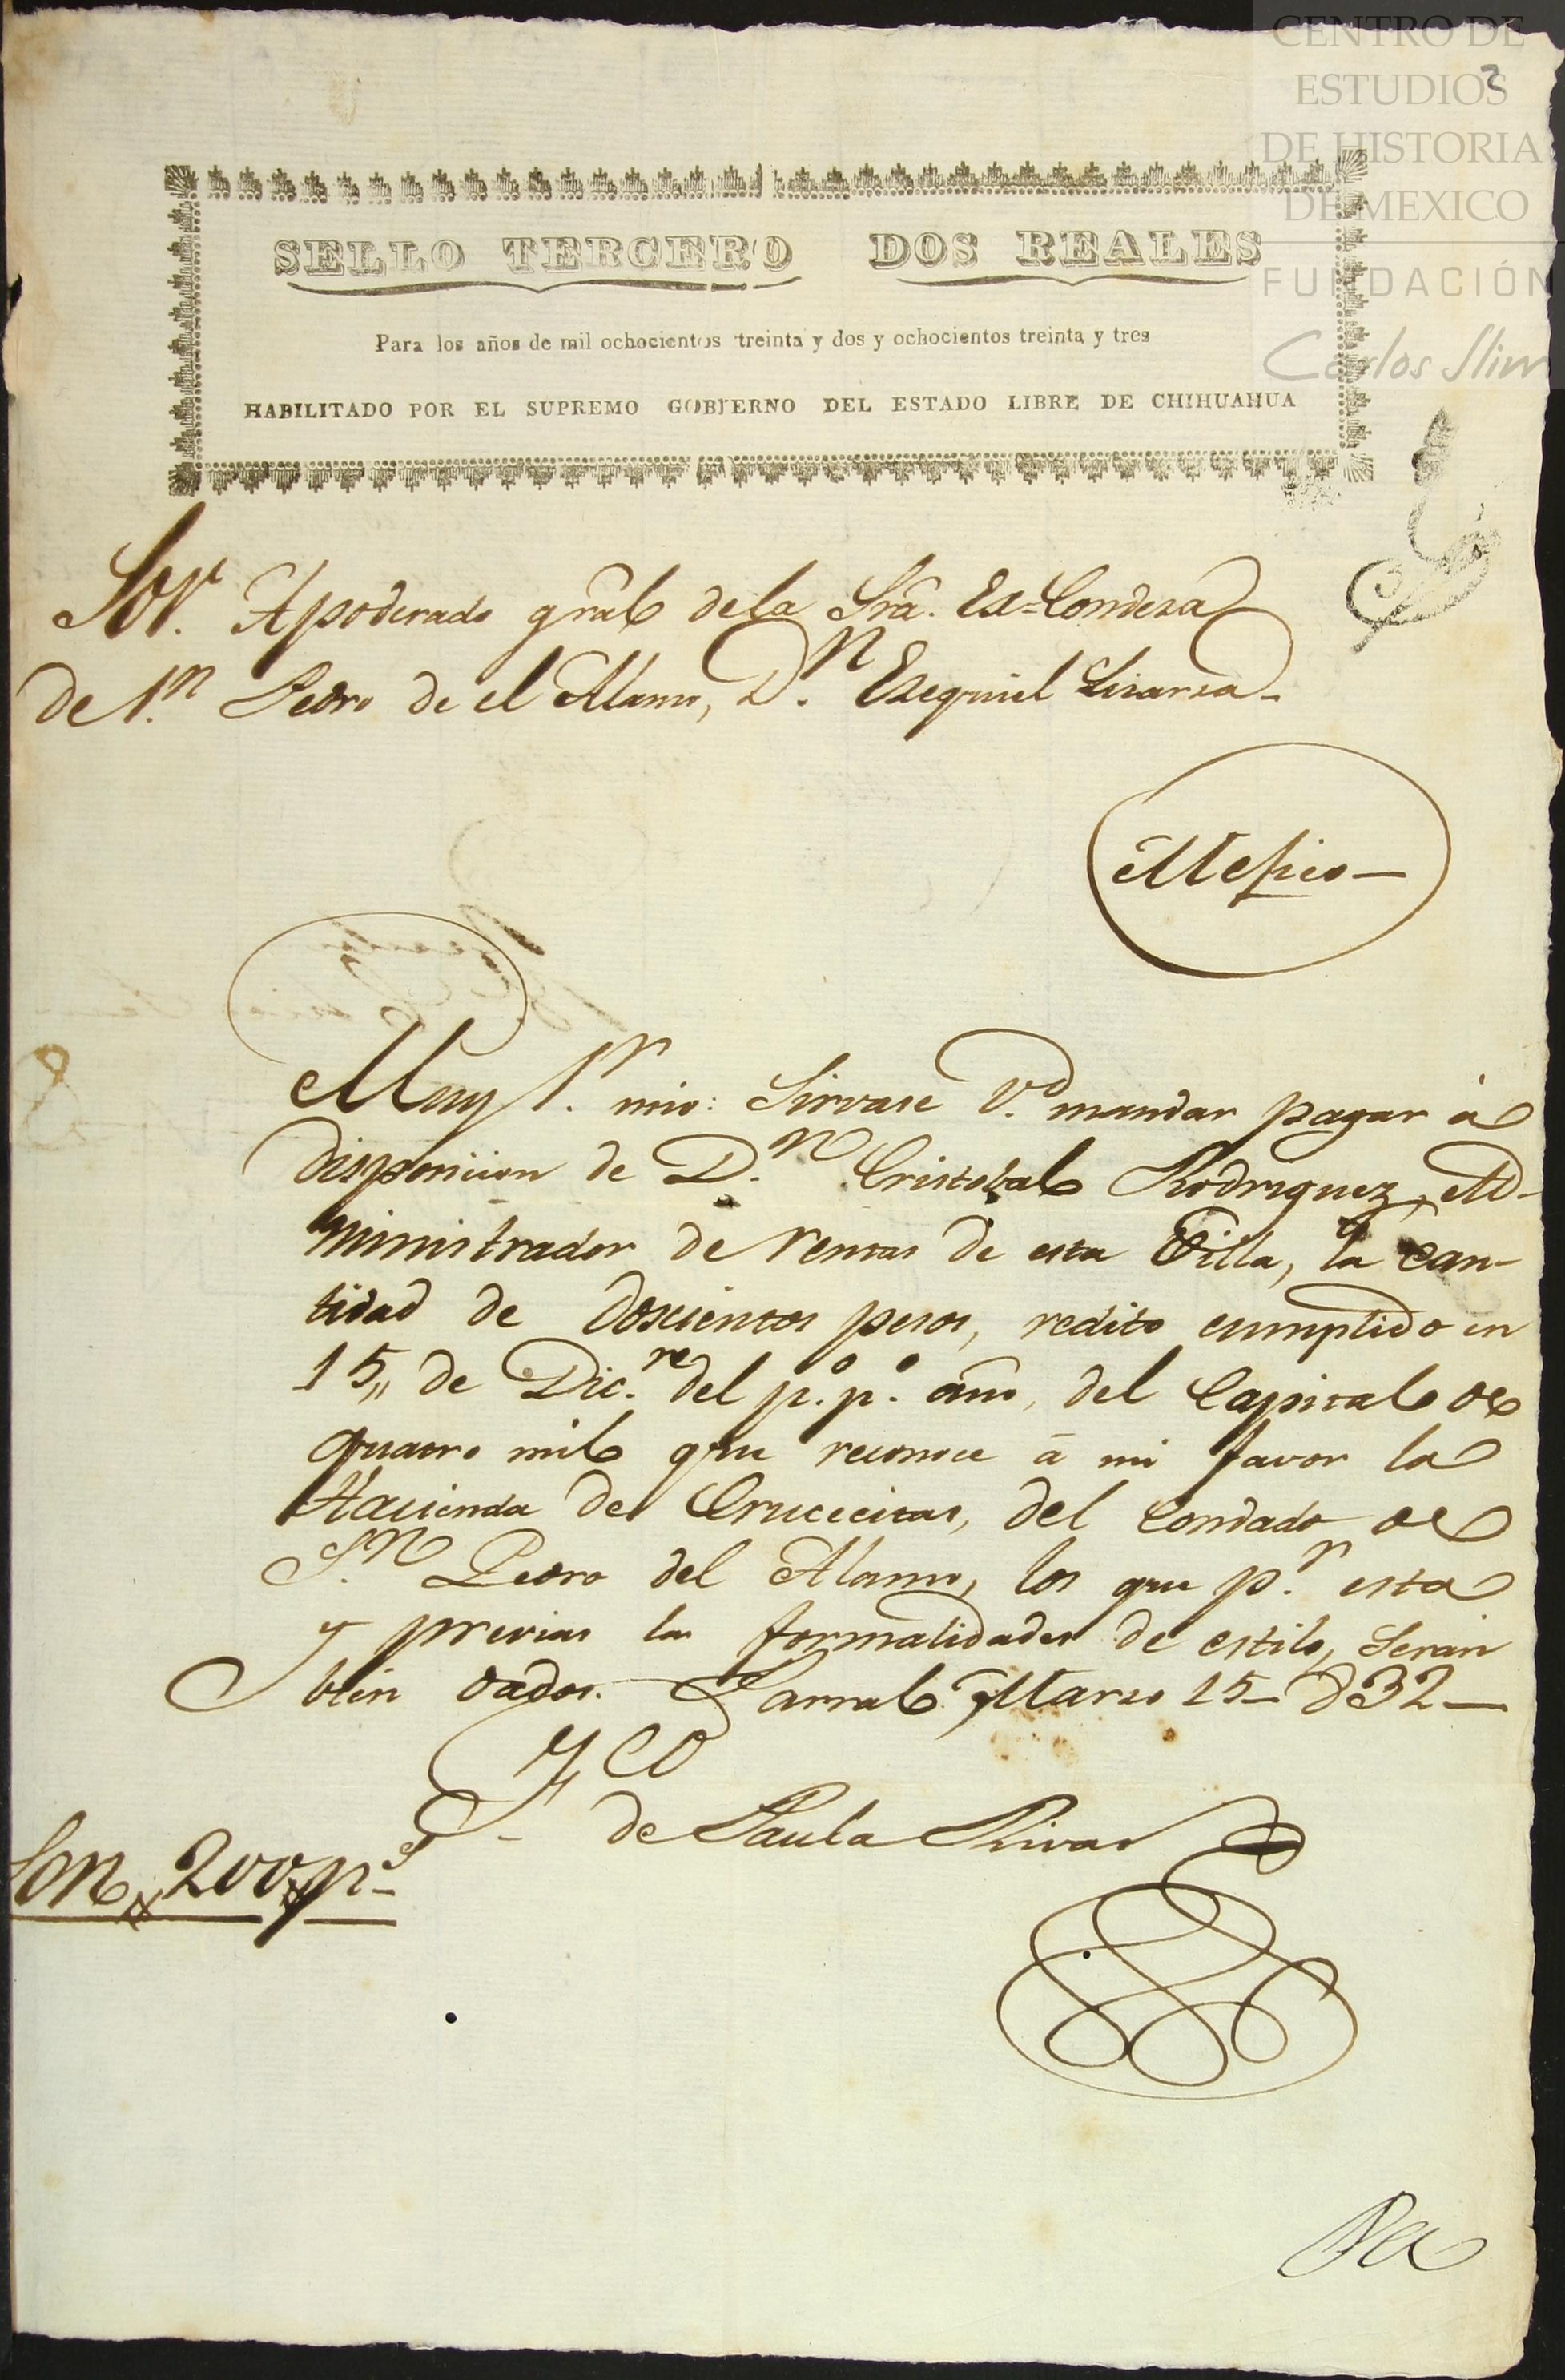 CENTRO DE
ESTUDIOS
DE HISTORIA
DE MEXICO
FUNDACIÓN
Carlos Slim
2
SELLO TERCERO DOS REALES
Para los años de mil ochocientos treinta y dos y ochocientos treinta y tres
HABILITADO POR EL SUPREMO GOBIERNO DEL ESTADO LIBRE DE CHIHUAHUA
Sor. Apoderado gral de la Sra. Ex-Condesa
de Sn. Pedro de el Alamo, Dn. Esequiel Lisarsa
Mexico
Muy Sr. mio: Sirvase Vd. mandar pagar á
disposicion de Dn. Cristobal Rodriguez, Ad-
ministrador de rentas de esta Villa, la can-
tidad de doscientos pesos, redito cumplido en
15,, de Dic.re del p.o p.o año, del Capital de
quatro mil que reconoce á mi favor la
Hacienda de Crucecitas, del Condado de
Sn. Pedro del Alamo, los que pr. esta
y previas las formalidades de estilo, serán
bien dados. Parral Marzo 15 d 32
Fco de Paula Rivas
Son 200 ps